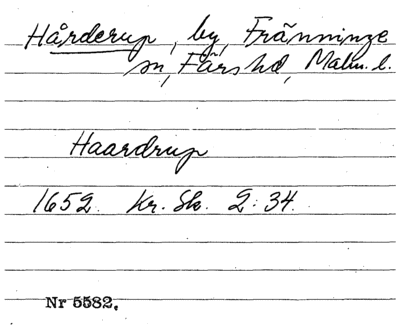 Hårderup, by, Fränninge
sn, Färs hd, Malm. l.
Haardrup
1652. Kr. Sk. 2:34.
Nr 5582.